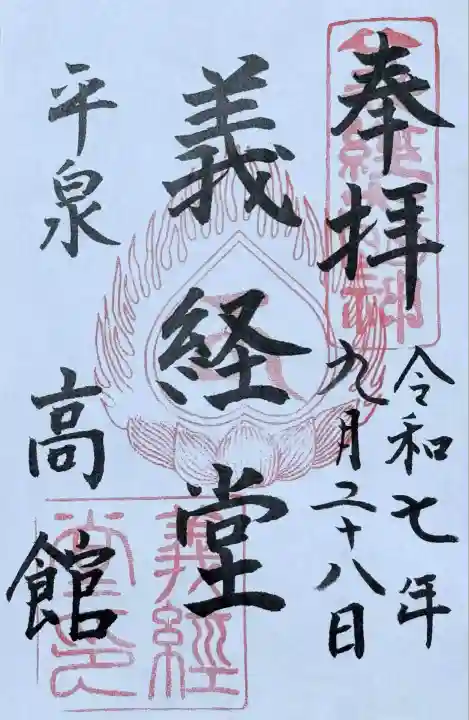 奉拝
令和七年
九月二十八日
義経堂
平泉
高館
義經
堂印